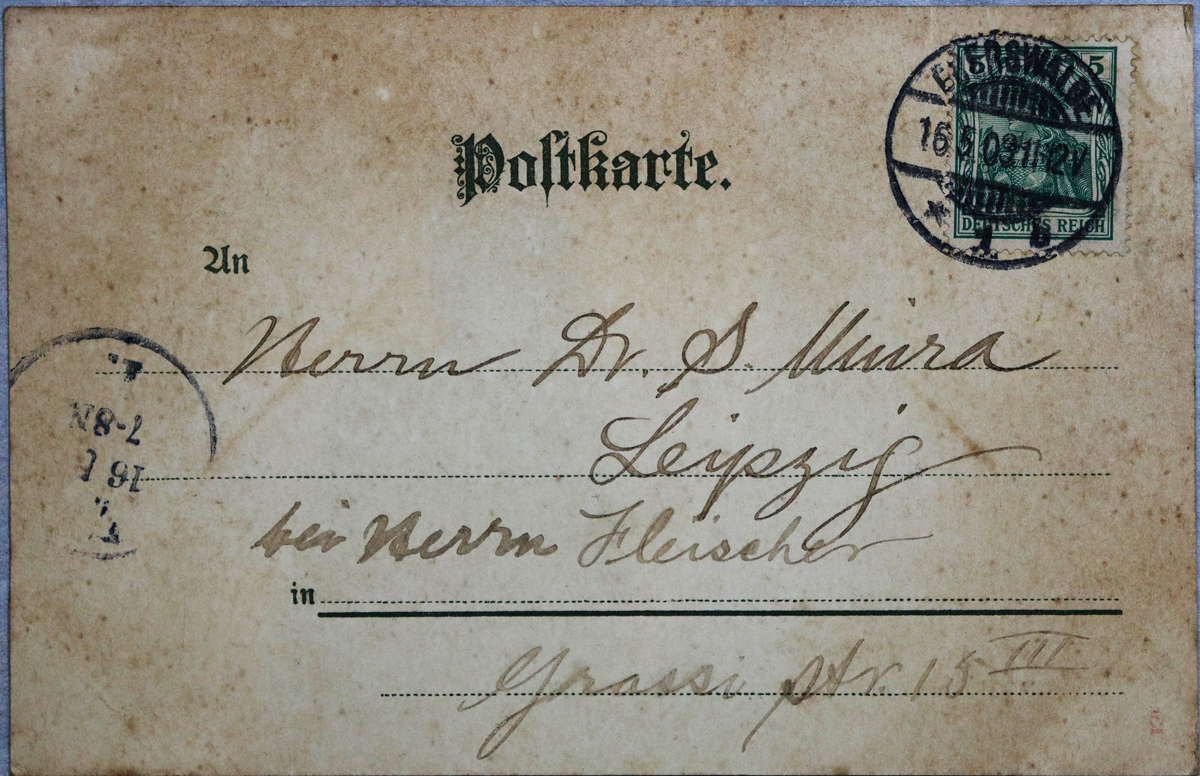 5 5
EBERSWALDE
16.5.03.11-12V
* 1 b
DEUTSCHES REICH
Postkarte.
An
Herrn Dr. S. Miura
Leipzig
bei Herrn Fleischer
in
Grassi str. 15 III
7-8N
16